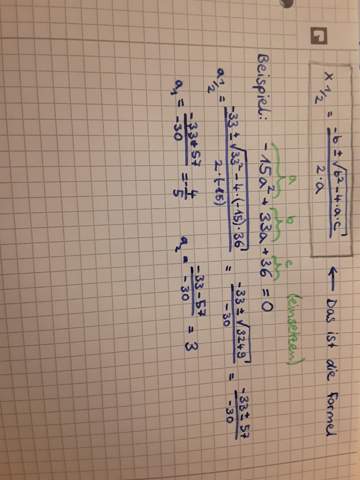 x 1/2 = (-b ± √(b² - 4·a·c)) / (2·a) ← Das ist die Formel
a b c (einsetzen)
Beispiel: -15a² + 33a + 36 = 0
a 1/2 = (-33 ± √(33² - 4·(-15)·36)) / (2·(-15)) = (-33 ± √3249) / -30 = (-33 ± 57) / -30
a₁ = (-33+57) / -30 = -4/5 a₂ = (-33-57) / -30 = 3